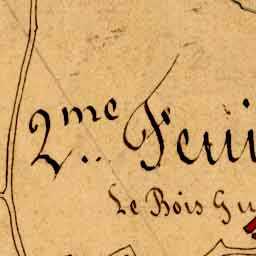 2.me Feui
Le Bois Gu